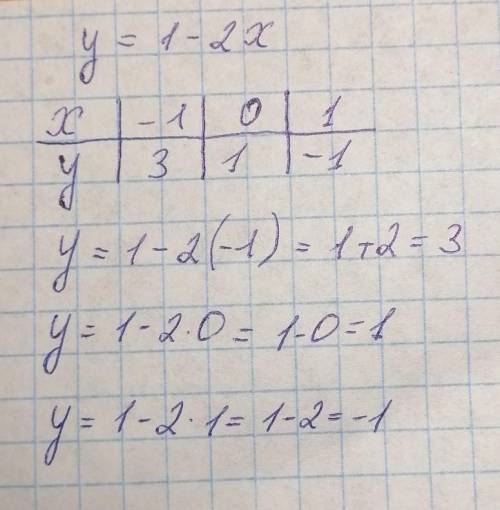 y = 1 - 2x
x | -1 | 0 | 1
y | 3 | 1 | -1
y = 1 - 2(-1) = 1+2 = 3
y = 1 - 2·0 = 1-0 = 1
y = 1 - 2·1 = 1-2 = -1